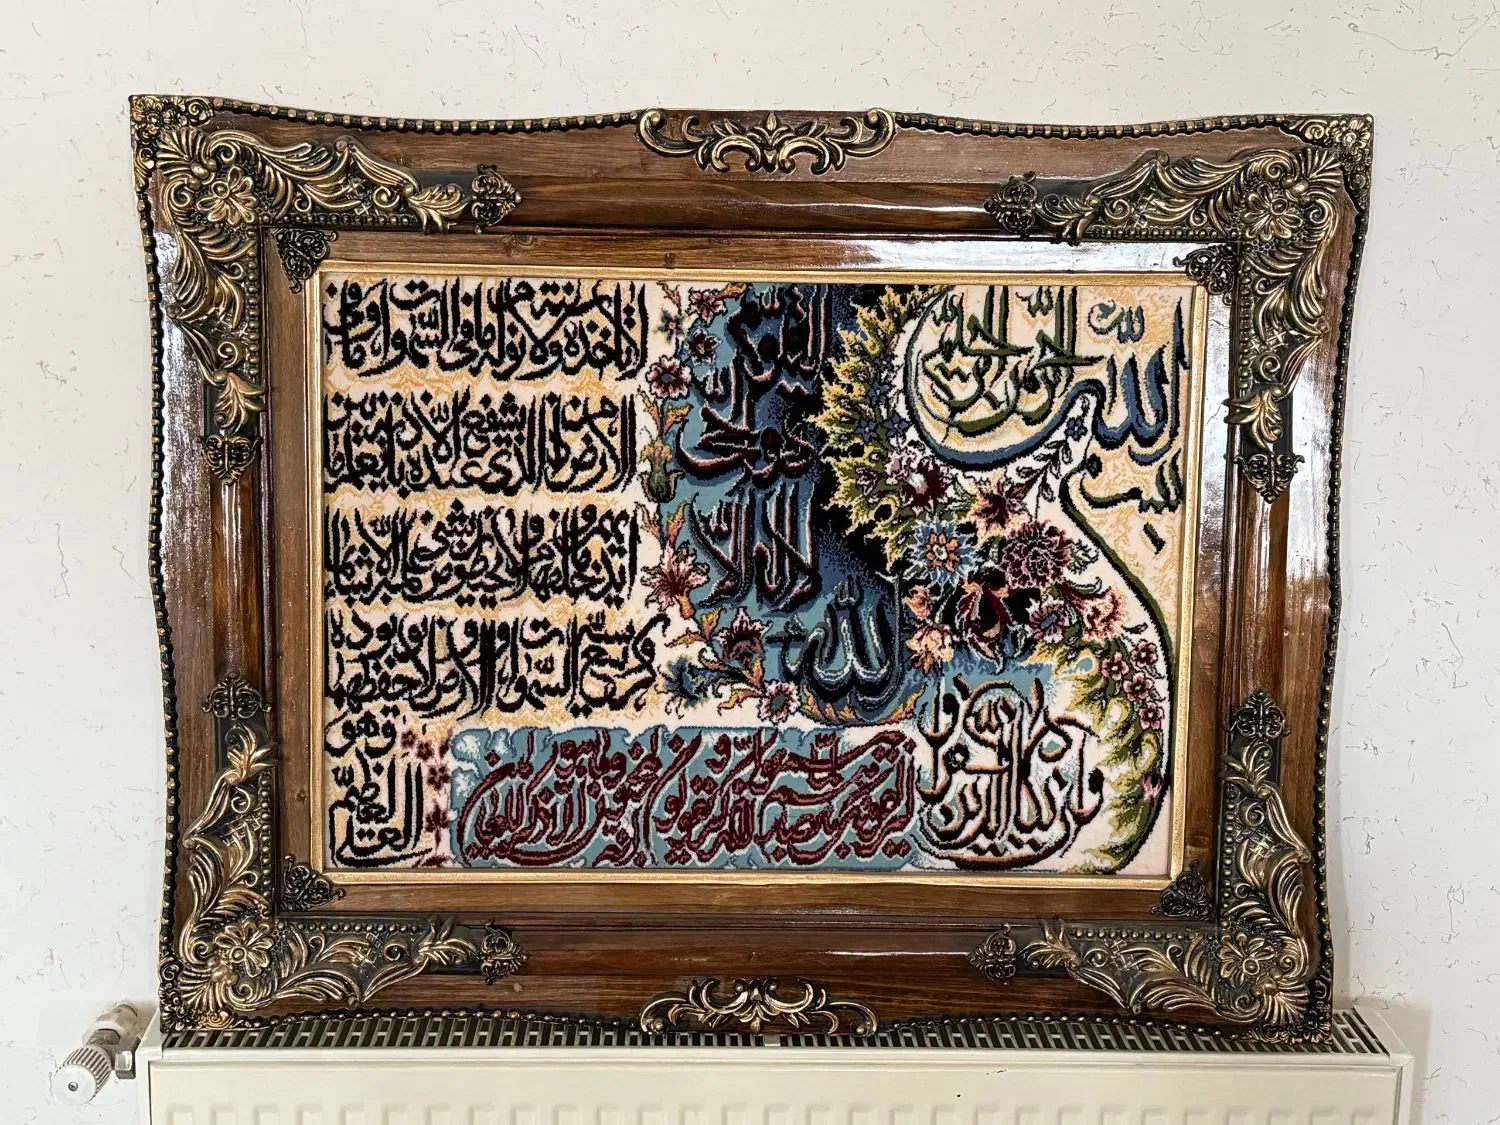 بسم الله الرحمن الرحیم
الله
لا اله الا
هو الحی
القیوم
لا تاخذه سنة ولا نوم له ما فی السموات وما فی
الارض من ذا الذی یشفع عنده الا باذنه یعلم ما بین
ایدیهم وما خلفهم ولا یحیطون بشیء من علمه الا بما شاء
وسع کرسیه السموات والارض ولا یؤده حفظهما
وهو
العلی العظیم
وان یکاد الذین کفروا
لیزلقونک بابصارهم لما سمعوا الذکر ویقولون انه لمجنون وما هو الا ذکر للعالمین